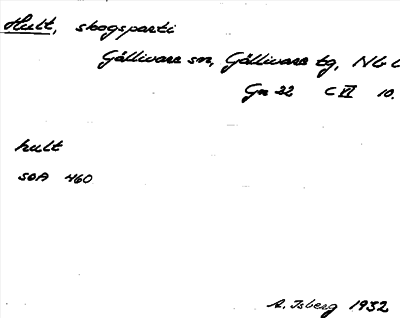 Hult, skogsparti
Gällivare sn, Gällivare tg, Nb l
Gn 22 C VI 10.
hult
SOA 460
A. Isberg 1932